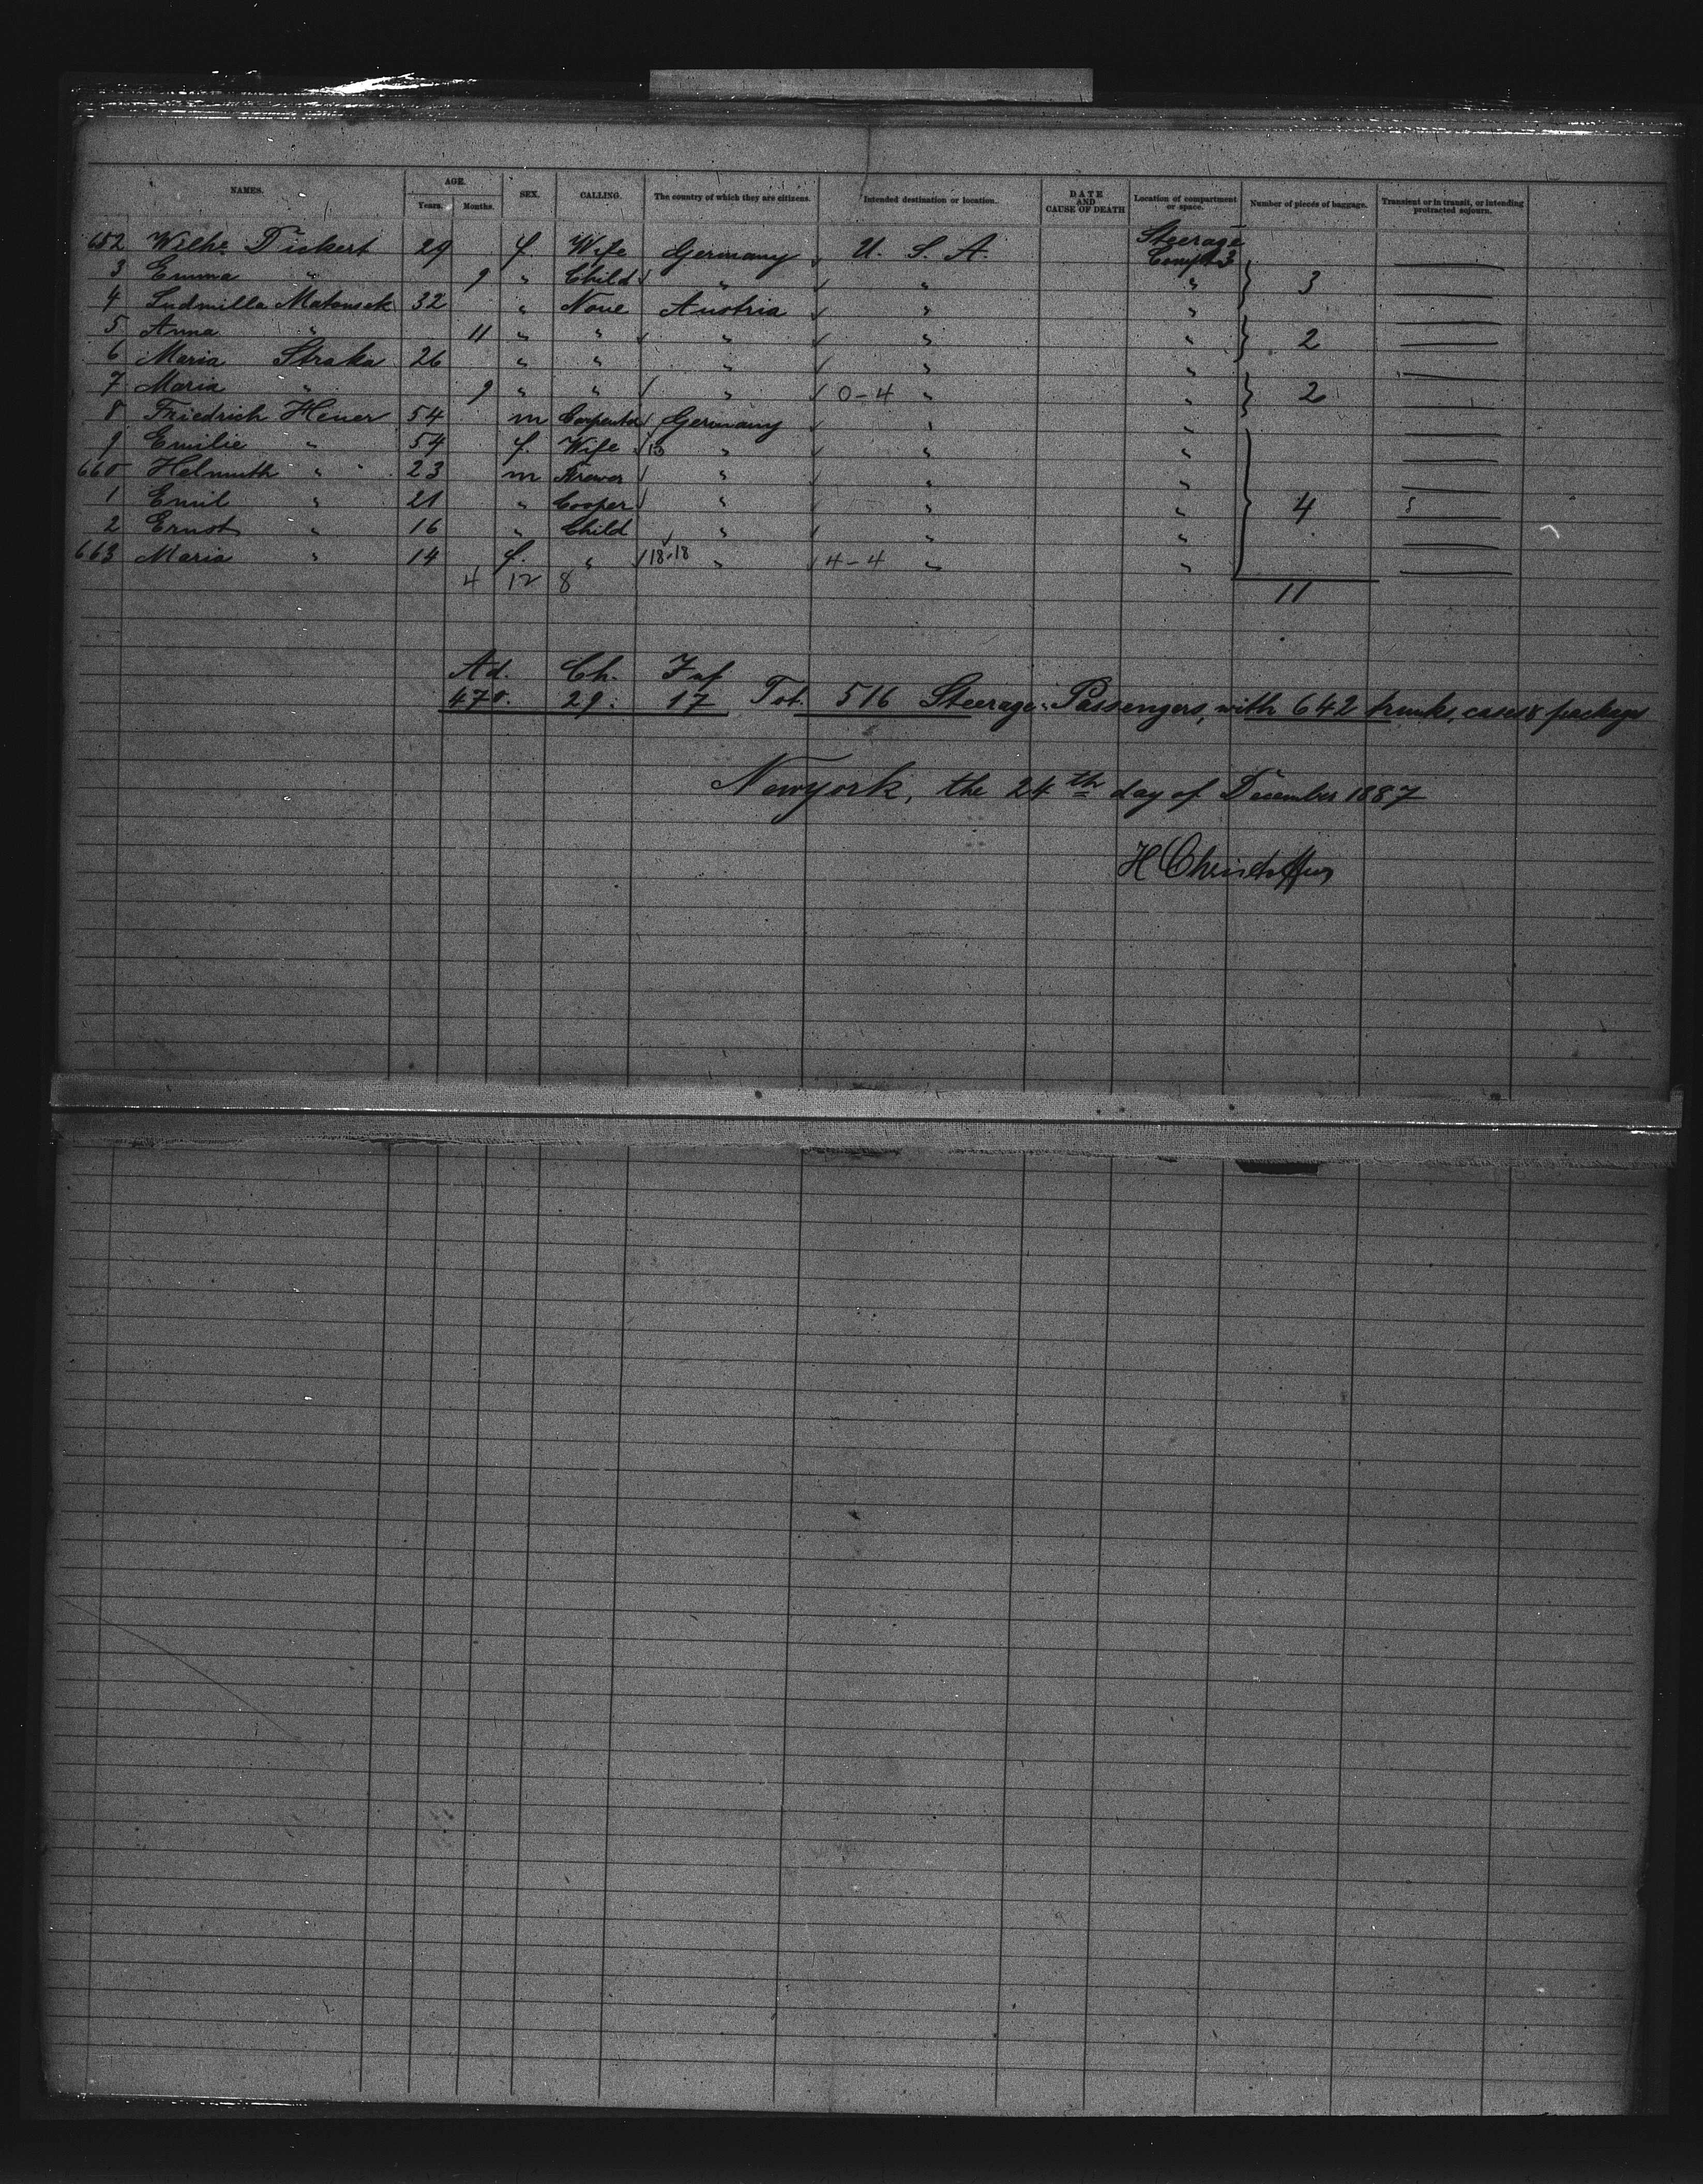 NAMES. AGE. SEX. CALLING. The country of which they are citizens. Intended destination or location. DATE AND CAUSE OF DEATH Location of compartment or space. Number of pieces of baggage. Transient or in transit, or intending protracted sojourn.
Years. Months.
652 Wilhe. Dickert 29 f. Wife Germany U. S. A. Steerage Compt 3
3 Emma " 9 " Child " " " 3
4 Ludmilla Matousek 32 " None Austria " "
5 Anna " 11 " " " " " 2
6 Maria Straka 26 " " " " "
7 Maria " 9 " " " 0-4 " " 2
8 Friedrich Heuer 54 m Carpenter Germany " "
9 Emilie " 54 f. Wife 13 " " "
660 Helmuth " 23 m Brewer " " "
1 Emil " 21 " Cooper " " " 4
2 Ernst " 16 " Child " " "
663 Maria " 14 f. " 18-18 " 4-4 " "
4 12 8 11
Ad. Ch. Inf
470. 29. 17 Tot. 516 Steerage-Passengers, with 642 trunks, cases & packages
Newyork, the 24th day of December 1887
H Christoffers